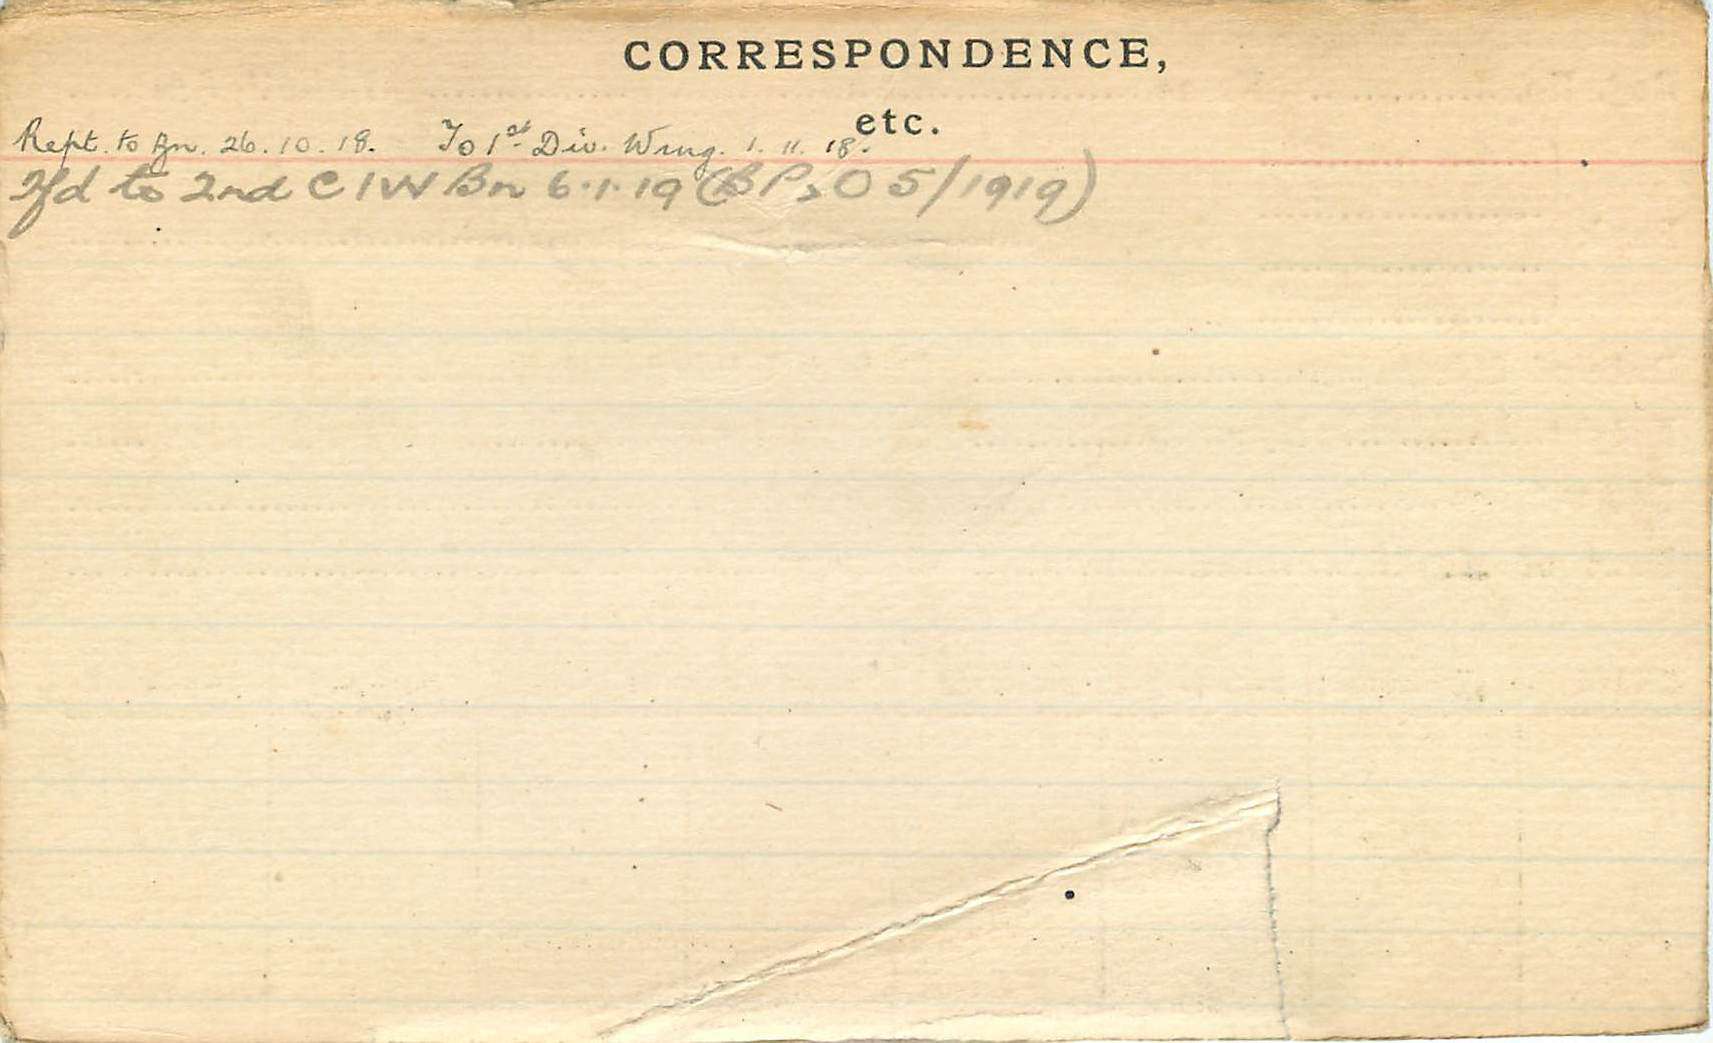 CORRESPONDENCE,
etc.
Rept. to Bn. 26.10.18. To 1st Div. Wing. 1.11.18.
Tfd to 2nd C I W Bn 6.1.19 (B P2 O 5/1919)